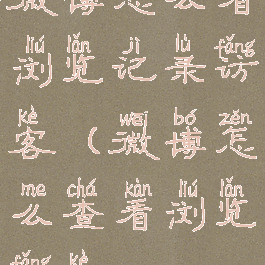 微博怎么看
liú lǎn jì lù fǎng
浏览记录访
kè wēi bó zěn
客（微博怎
me chá kàn liú lǎn
么查看浏览
fǎng kè